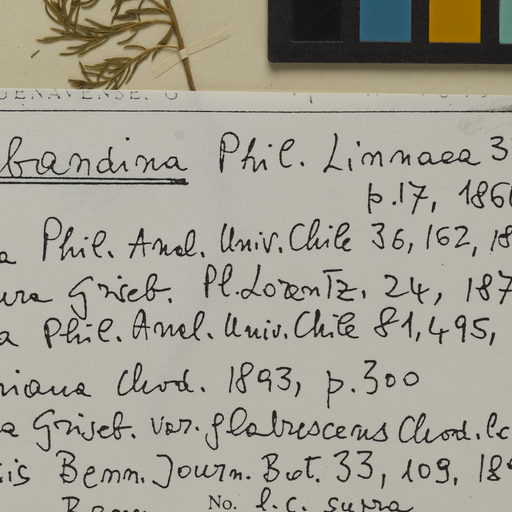 bandina Phil. Linnaea 3
p.17, 186
a Phil. Anal. Univ. Chile 36, 162, 18
ura Griseb. Pl. Lorentz. 24, 187
a Phil. Anal. Univ. Chile 81, 495,
niana Chod. 1893, p.300
a Griseb. var. glabrescens Chod. lc
sis Benn. Journ. Bot. 33, 109, 18
Benn No. l.c. supra